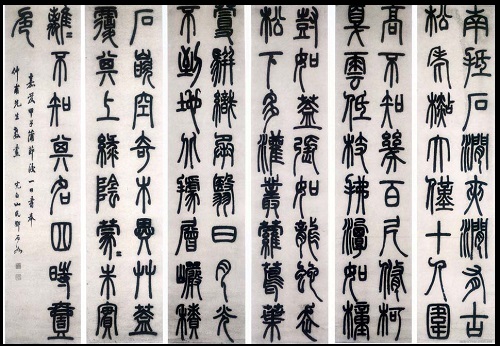 南抵石澗夾澗有古
松老杉大僅十人圍
高不知幾百尺修柯
戛雲低枝拂潭如幢
豎如蓋張如龍蛇走
松下多灌叢蘿蔦葉
蔓駢織承翳日月光
不到地北據層巖積
石嵌空奇木異草蓋
覆其上綠陰蒙〻朱實
離〻不知其名四時壹
色
嘉慶甲子蒲節後一日書奉
仲甫先生教 完白山民鄧石如